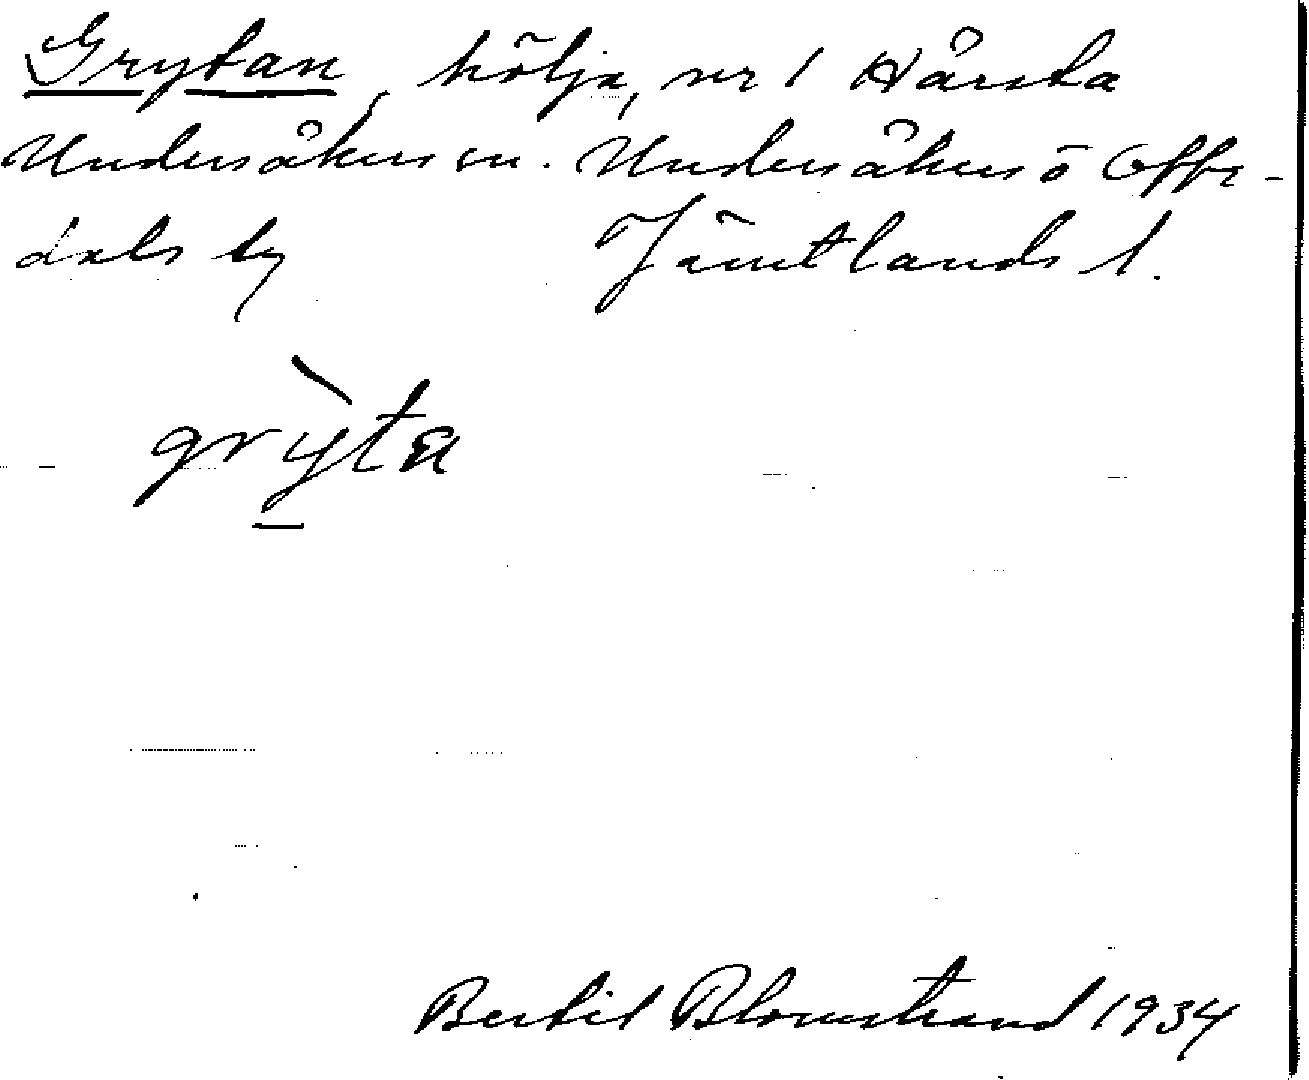 Grytan, hölja, nr 1 Hårsta
Undersåkers sn. Undersåkers o Offer-
dals tg Jämtlands l.
grỳta
Bertil Blomstrand 1934